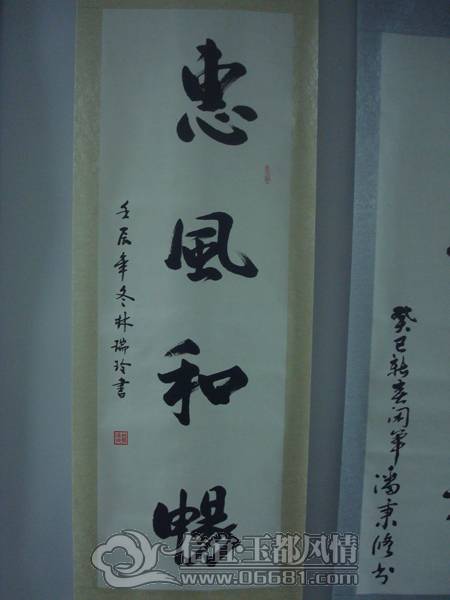 惠風和暢
壬辰年冬林瑞玲書
癸巳新春開筆潘秉修书
信宜·玉都风情
www.06681.com